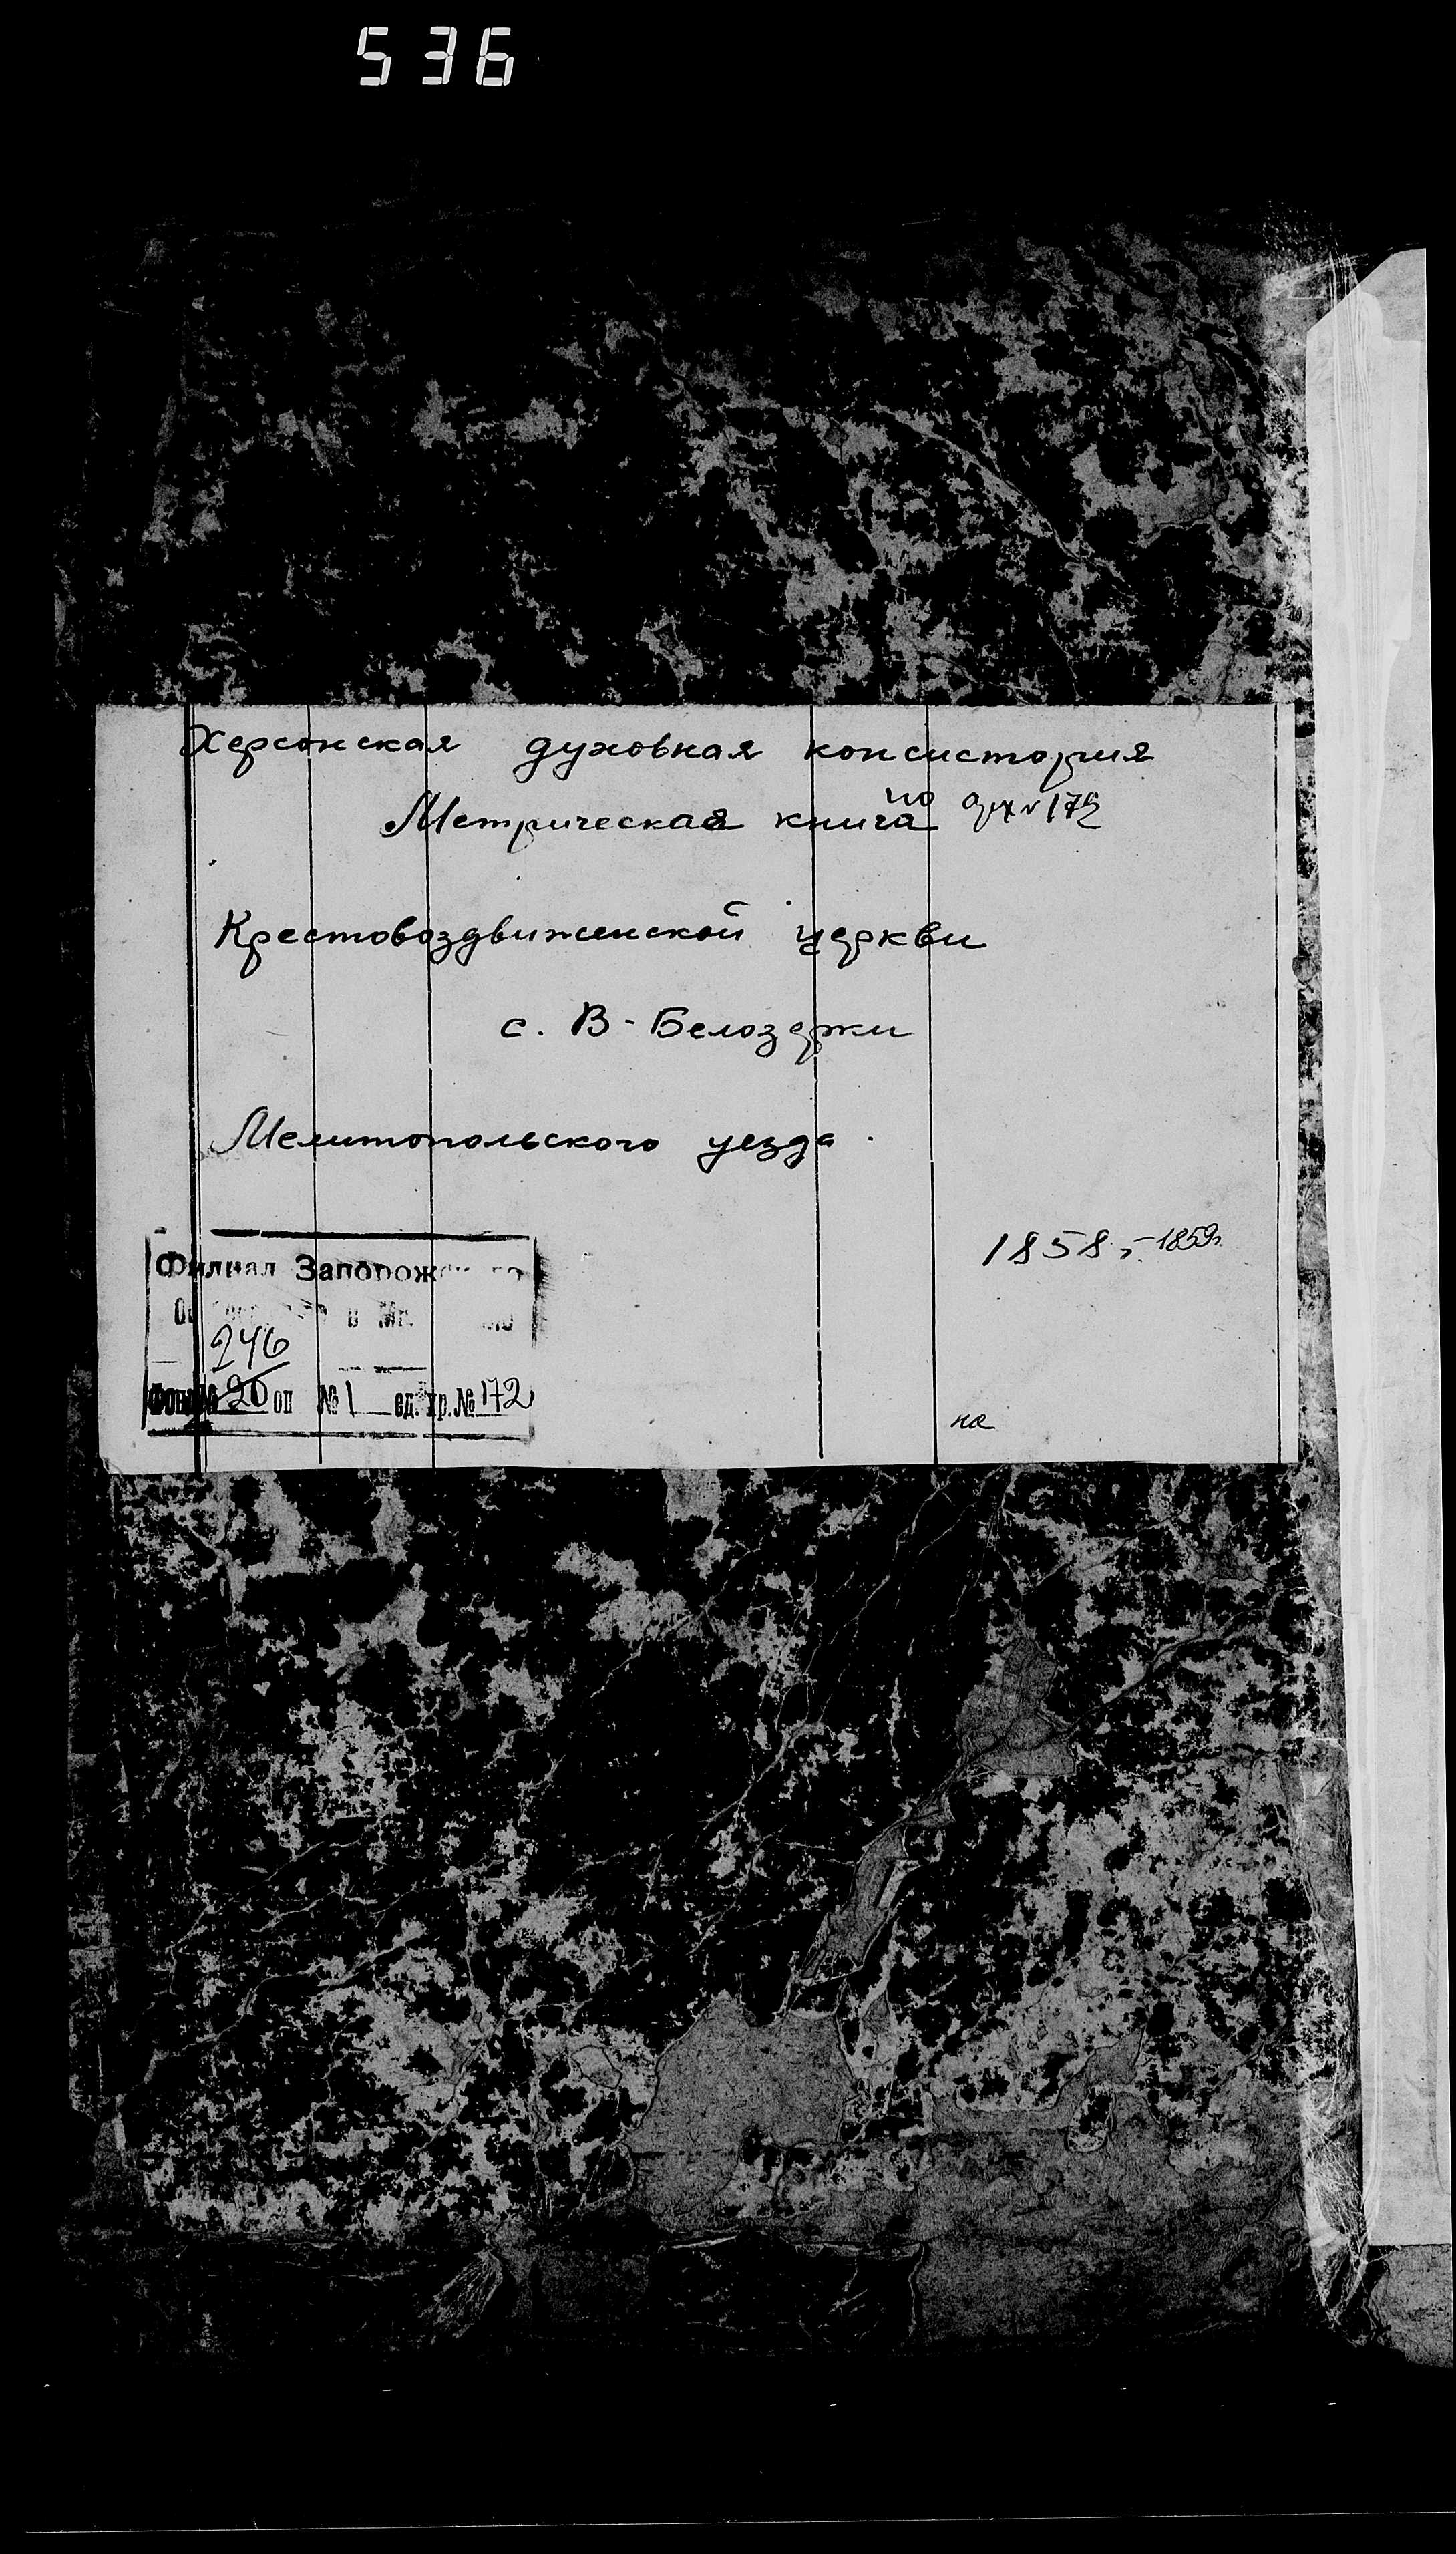 536
Херсонская духовная консистория
Метрическая книга по
Крестовоздвиженской церкви
с. В-Белозерки
Мелитопольского уезда.
1858г-1859г.
Филиал Запорож
246
Фонд № 20 оп №1 ед. хр. №172
на